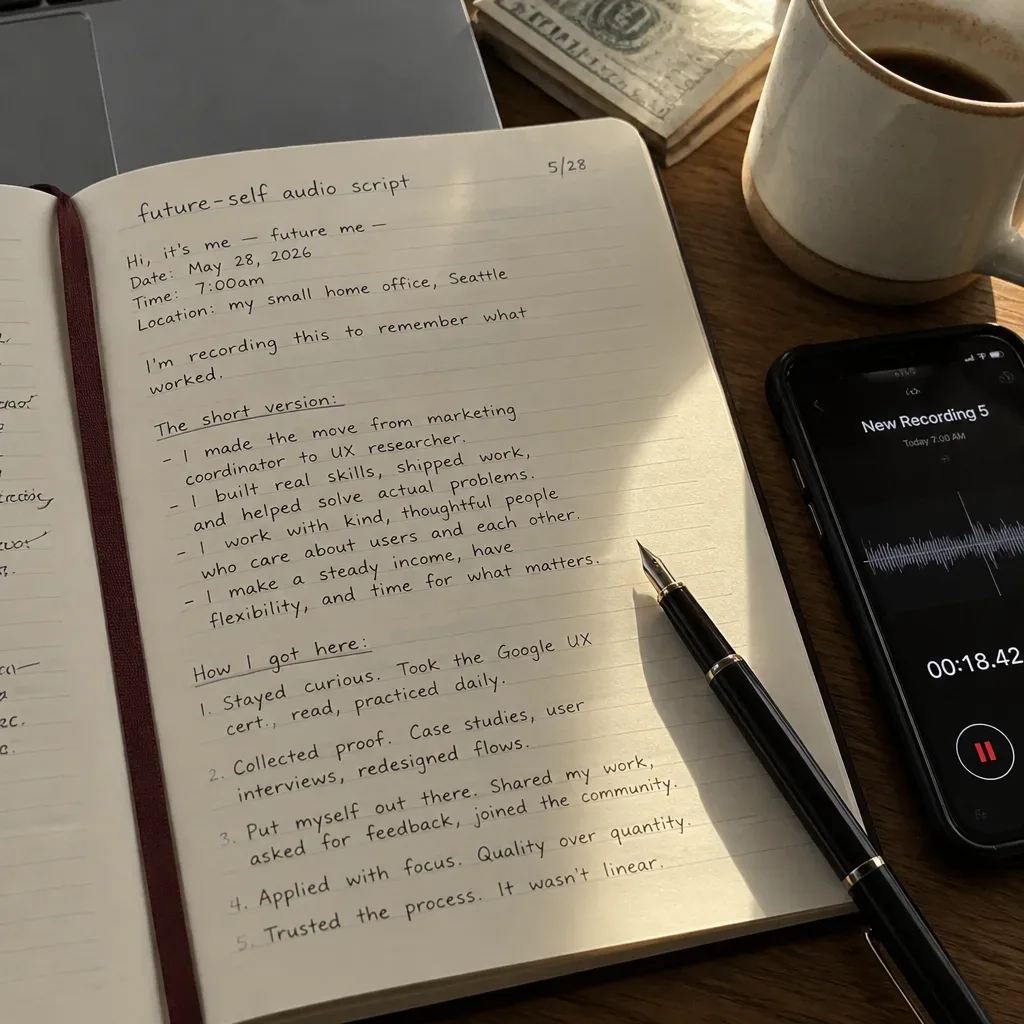 future-self audio script
5/28
Hi, it's me — future me —
Date: May 28, 2026
Time: 7:00am
Location: my small home office, Seattle
I'm recording this to remember what
worked.
The short version:
- I made the move from marketing
coordinator to UX researcher.
- I built real skills, shipped work,
and helped solve actual problems.
- I work with kind, thoughtful people
who care about users and each other.
- I make a steady income, have
flexibility, and time for what matters.
How I got here:
1. Stayed curious. Took the Google UX
cert., read, practiced daily.
2. Collected proof. Case studies, user
interviews, redesigned flows.
3. Put myself out there. Shared my work,
asked for feedback, joined the community.
4. Applied with focus. Quality over quantity.
5. Trusted the process. It wasn't linear.
New Recording 5
Today 7:00 AM
00:18.42